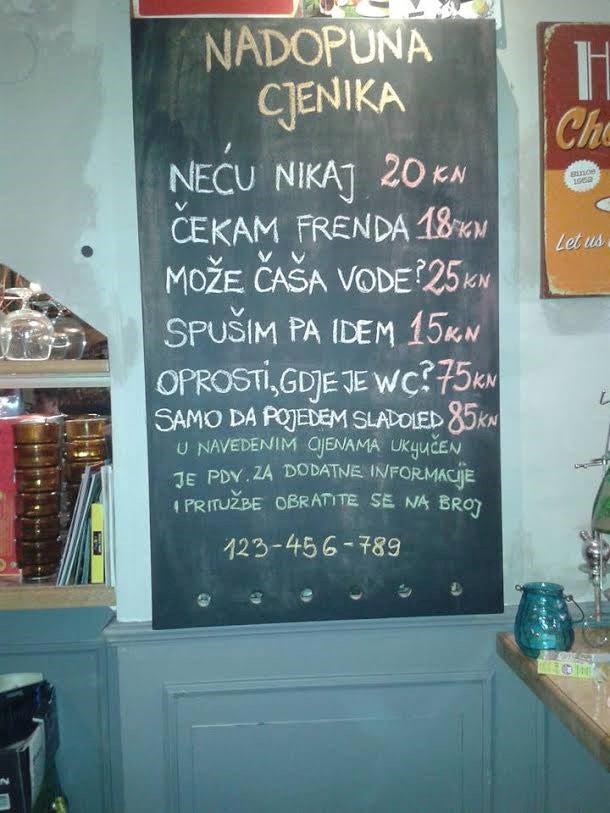 NADOPUNA
CJENIKA
NEĆU NIKAJ 20 KN
ČEKAM FRENDA 18 KN
MOŽE ČAŠA VODE? 25 KN
SPUŠIM PA IDEM 15 KN
OPROSTI, GDJE JE WC? 75 KN
SAMO DA POJEDEM SLADOLED 85 KN
U NAVEDENIM CIJENAMA UKLJUČEN
JE PDV. ZA DODATNE INFORMACIJE
I PRITUŽBE OBRATITE SE NA BROJ
123-456-789
Since
1952
Let us